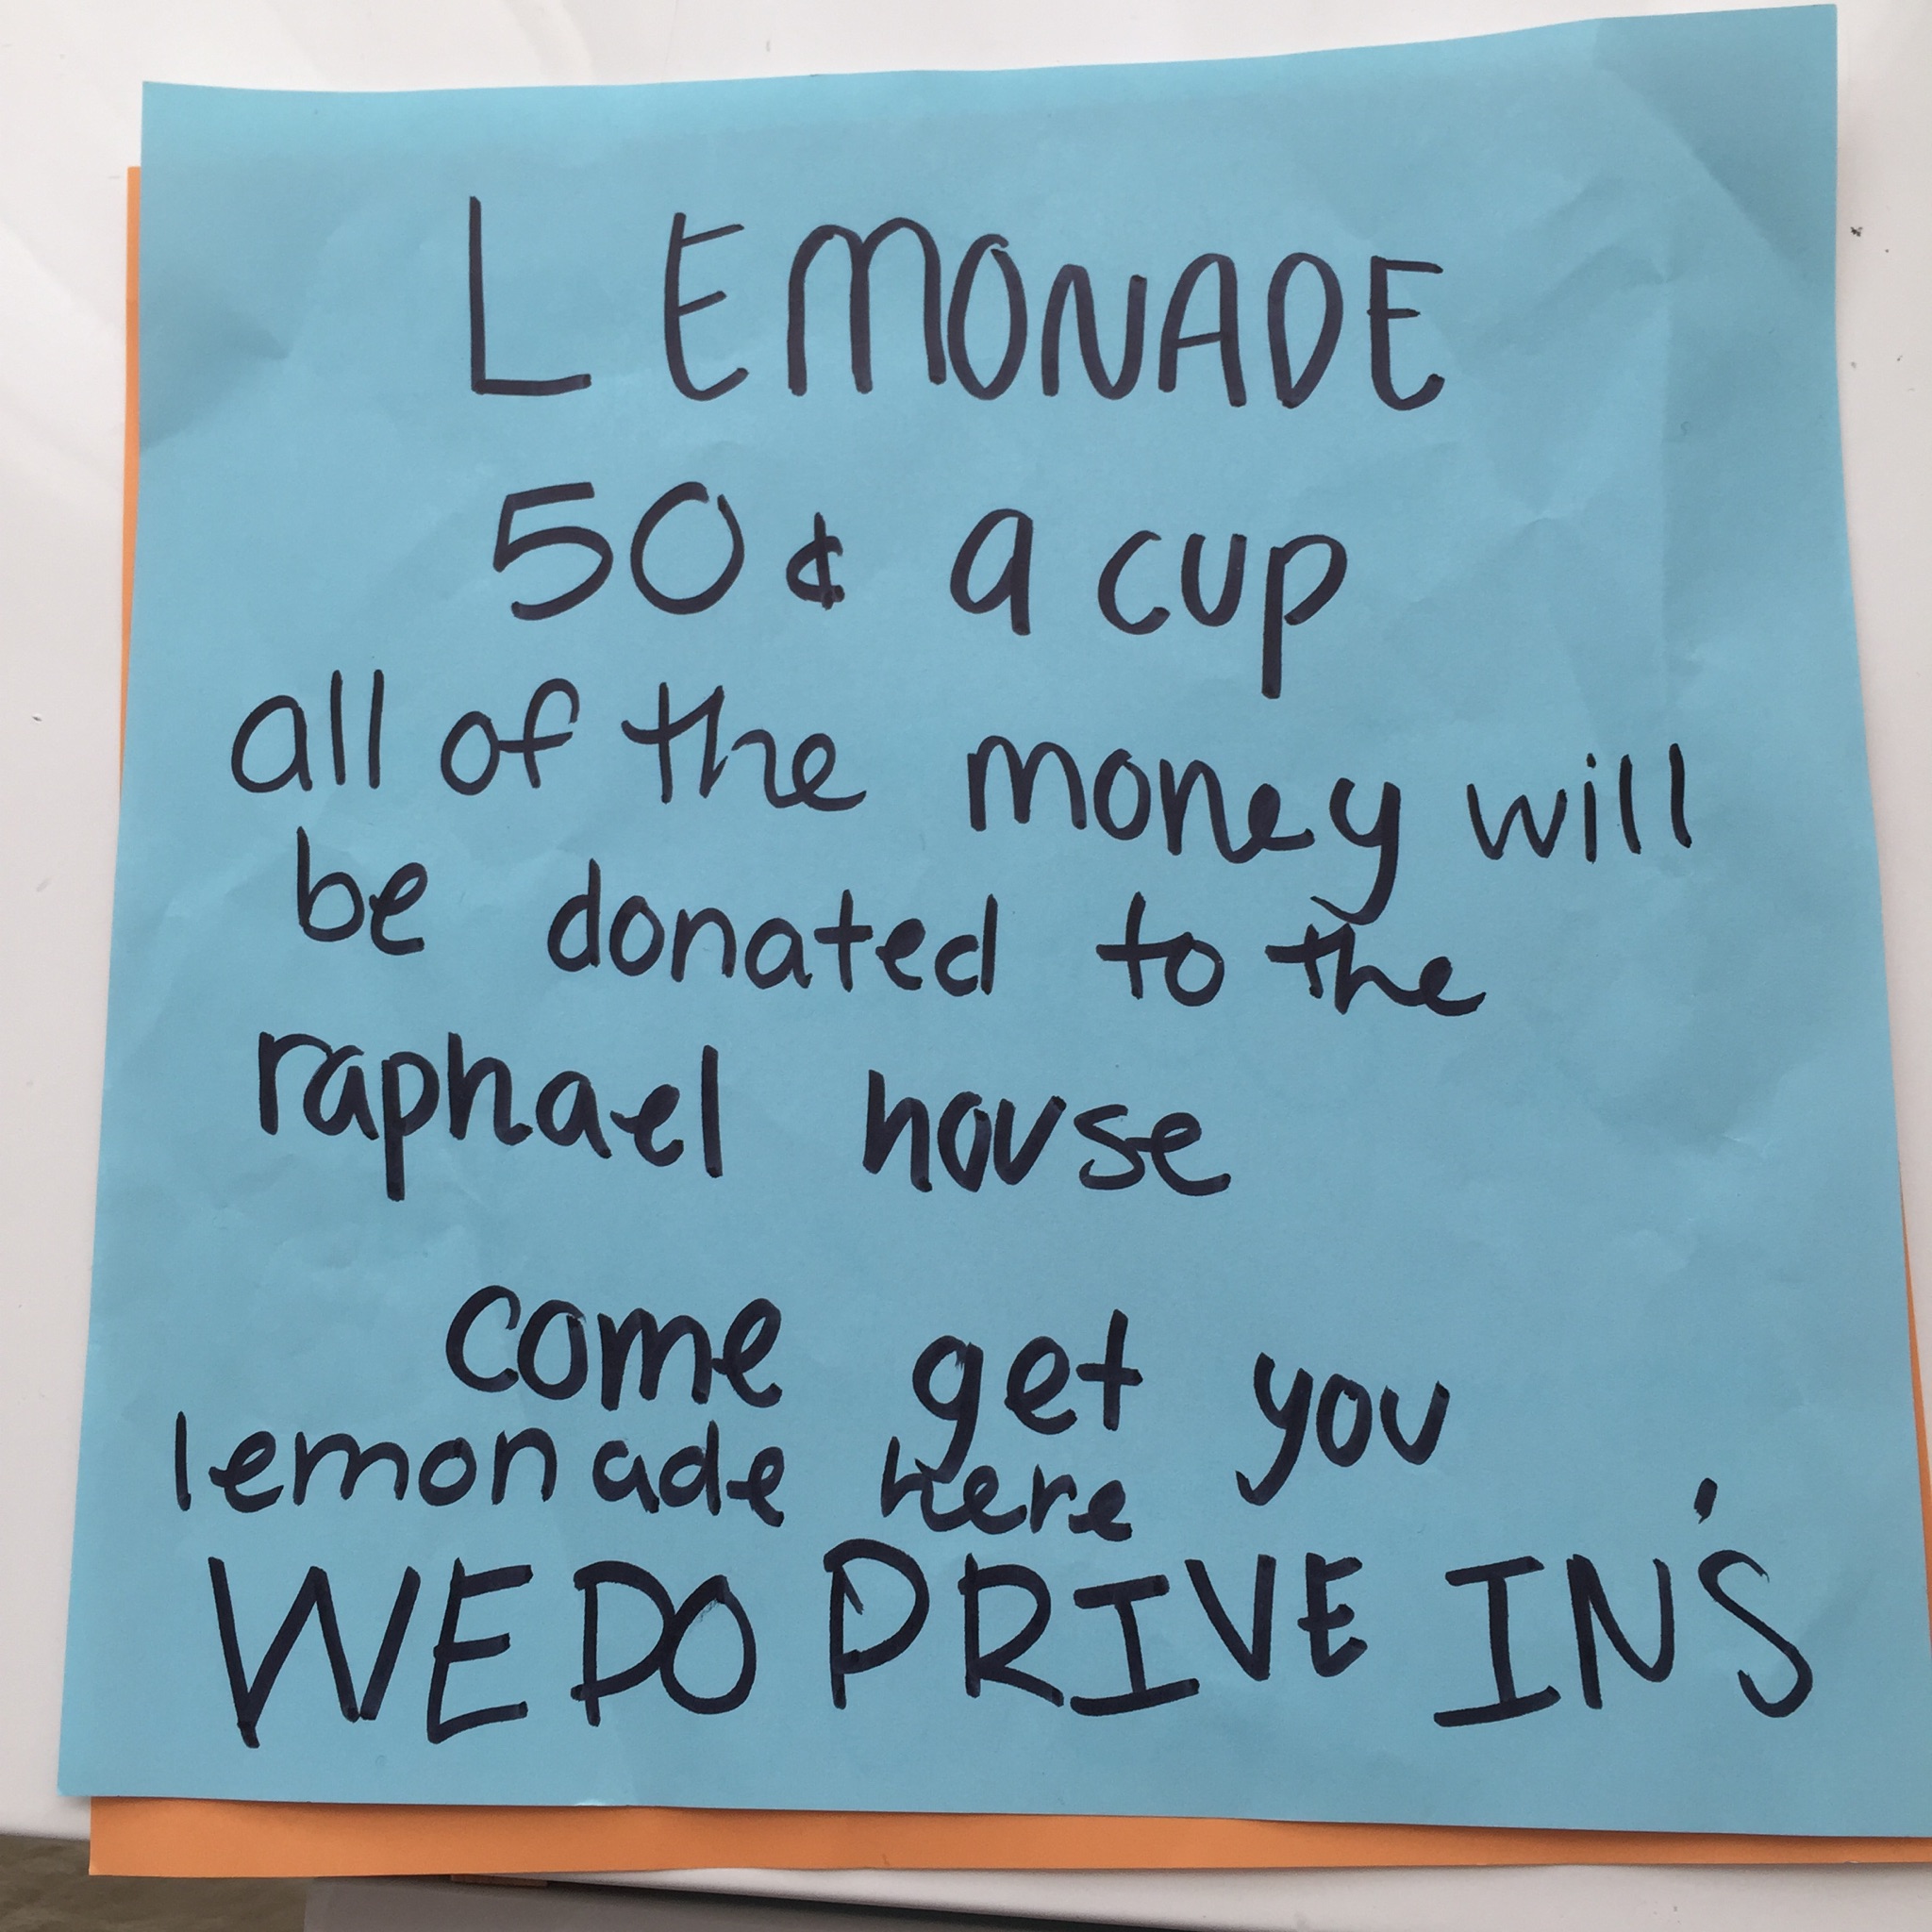 LEMONADE
50¢ a cup
all of the money will
be donated to the
raphael house
come get you
lemonade here
WE DO PRIVE IN'S